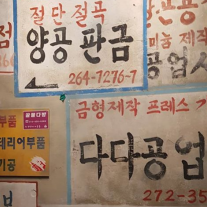 절단절곡
양공판금
264-7276-7
점
제작
공업사
금형제작 프레스
다다공업
272-35
부품
테리어부품
기공